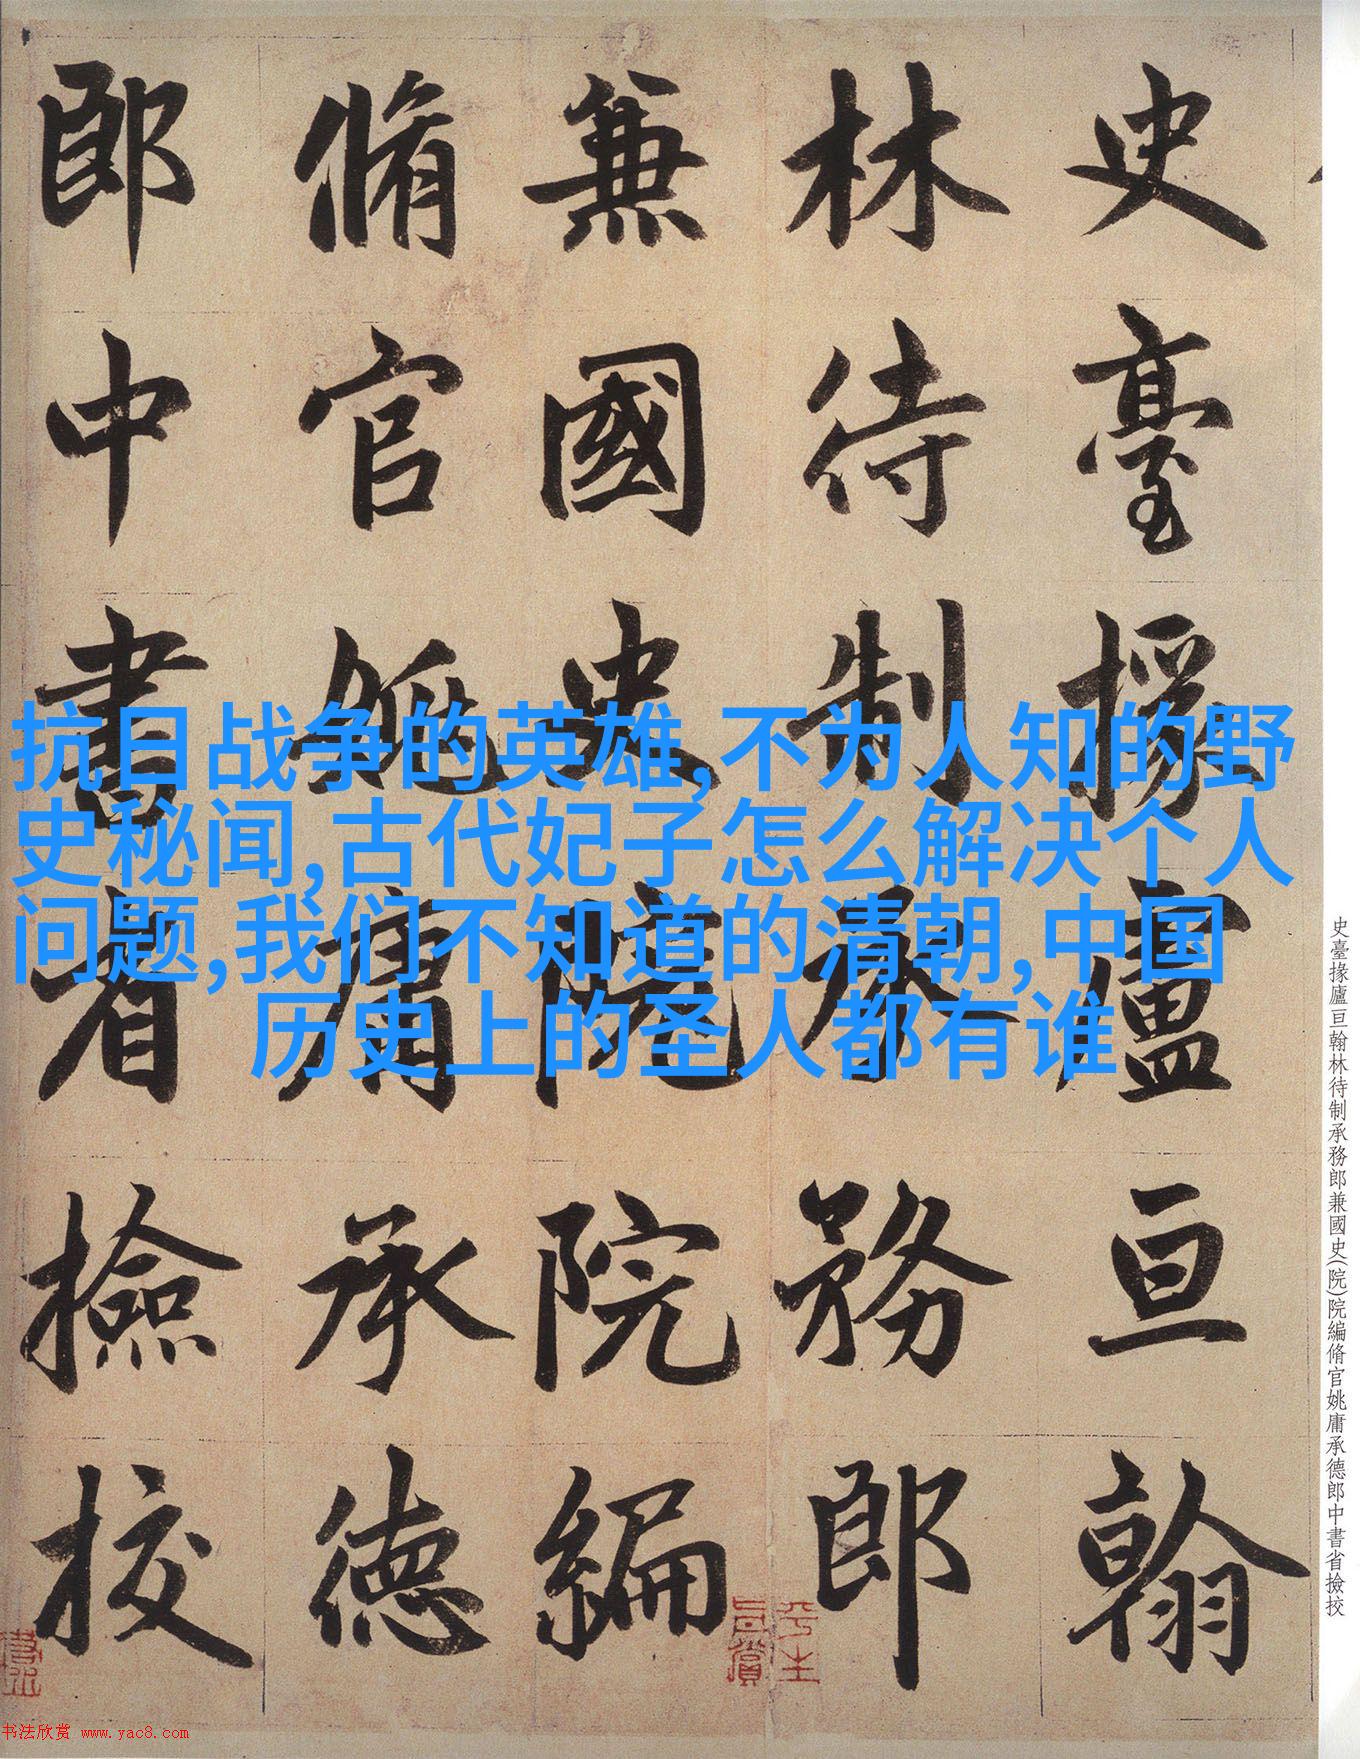 史臺掾盧亘翰
林待制承務郎
兼國史院院編
脩官姚庸承德
郎中書省檢校
抗日战争的英雄,不为人知的野
史秘闻,古代妃子怎么解决个人
问题,我们不知道的清朝,中国
历史上的圣人都有谁
史臺掾廬亘翰林待制承務郎兼國史(院)院編脩官姚庸承德郎中書省撿挍
书法欣赏 www.yac8.com